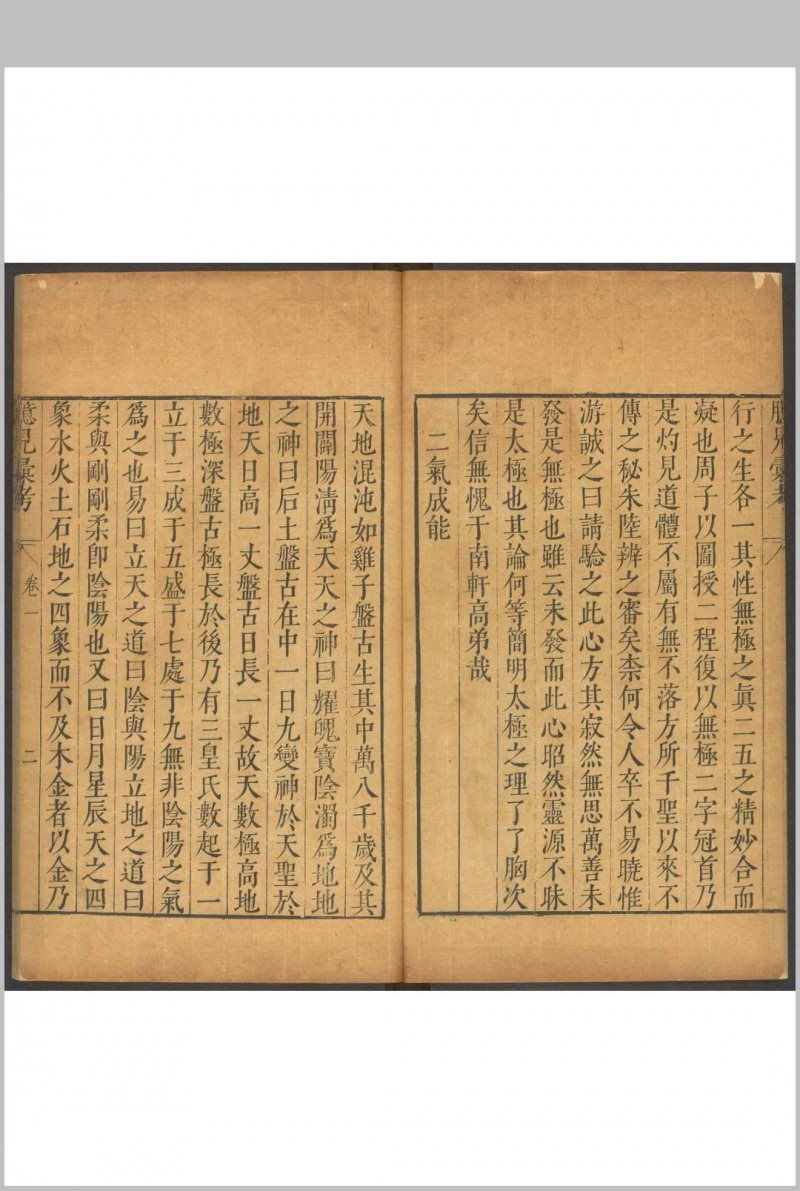 行之生各一其性無極之眞二五之精妙合而
凝也周子以圖授二程復以無極二字冠首乃
是灼見道體不屬有無不落方所千聖以來不
傳之秘朱陸辨之審矣柰何令人卒不易曉惟
游誠之曰請驗之此心方其寂然無思萬善未
發是無極也雖云未發而此心昭然靈源不昧
是太極也其論何等簡明太極之理了了胸次
矣信無愧于南軒高弟哉
二氣成能
天地混沌如雞子盤古生其中萬八千歲及其
開闢陽淸爲天天之神曰耀魄寶陰濁爲地地
之神曰后土盤古在中一日九變神於天聖於
地天日高一丈盤古日長一丈故天數極高地
數極深盤古極長於後乃有三皇氏數起于一
立于三成于五盛于七處于九無非陰陽之氣
爲之也易曰立天之道曰陰與陽立地之道曰
柔與剛剛柔卽陰陽也又曰日月星辰天之四
象水火土石地之四象而不及木金者以金乃
臆見彙考
卷一
二